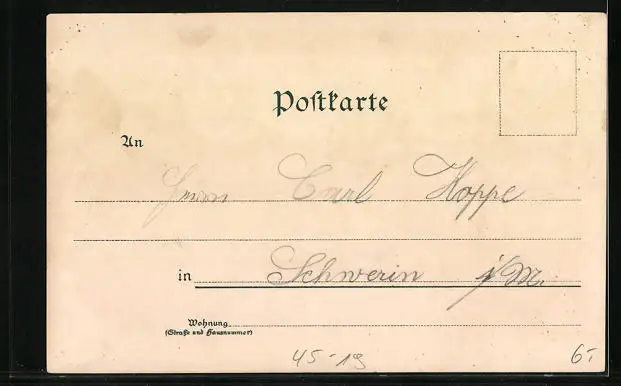 Postkarte
An
Herrn Carl Hoppe
in Schwerin i/M.
Wohnung
(Straße und Hausnummer)
45-19
6,-